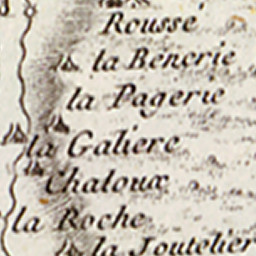 Rousse
la Benerie
la Pagerie
la Galiere
Chaloux
la Roche
la Joutelier